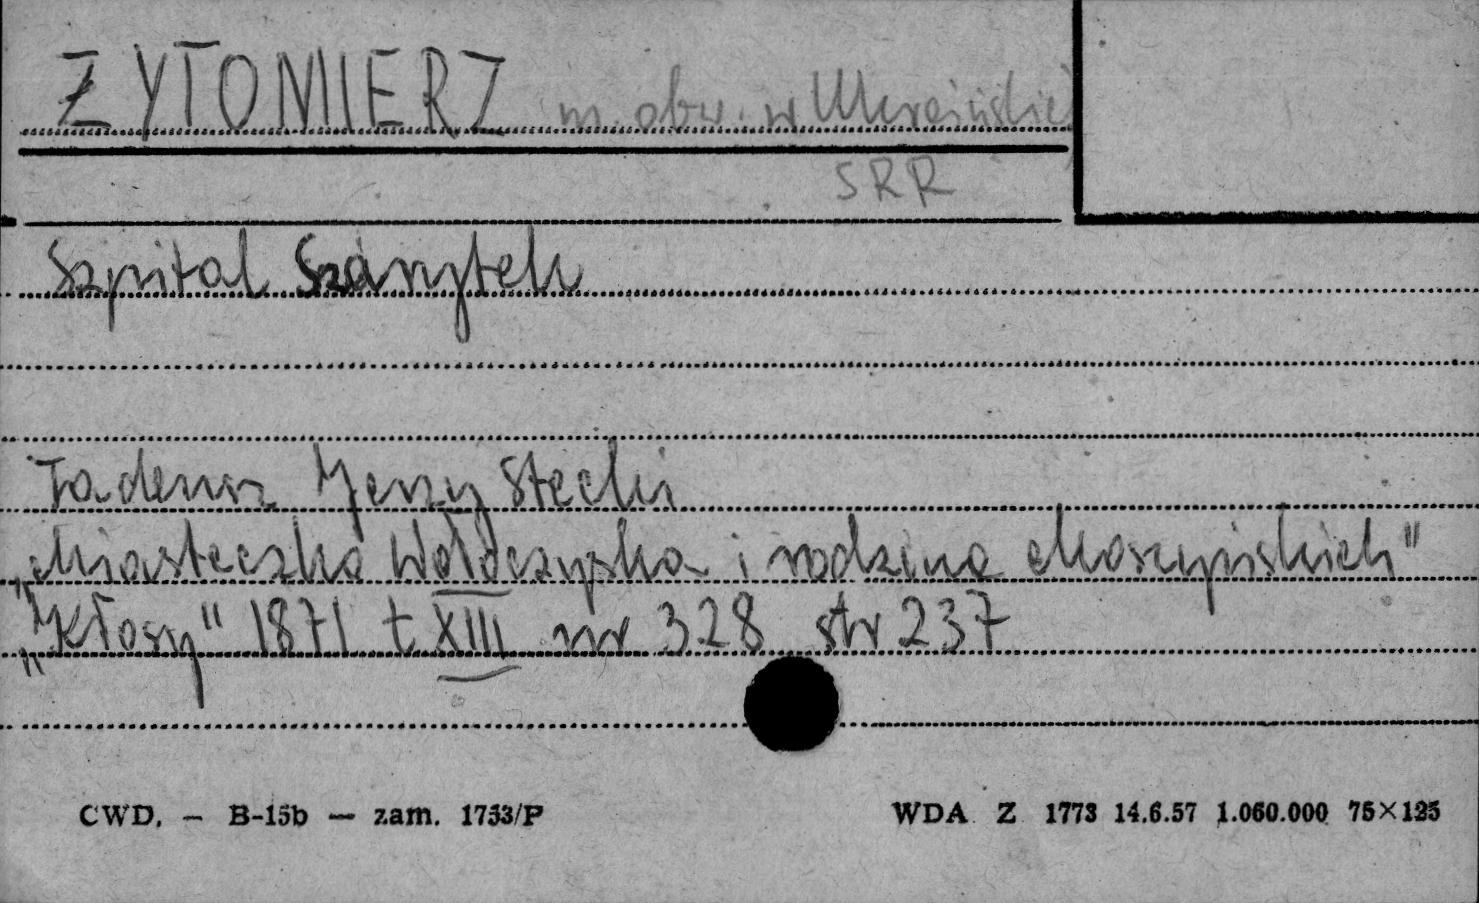 ŻYTOMIERZ m. obw. w Ukraińskiej
SRR
Szpital Szarytek
Tadeusz Jerzy Stecki
„Miasteczko Wołoczyska i rodzina Moszyńskich"
„Kłosy" 1871 t XIII nr 328 str 237
CWD. — B-15b — zam. 1753/P WDA Z 1773 14.6.57 1.060.000 75×125